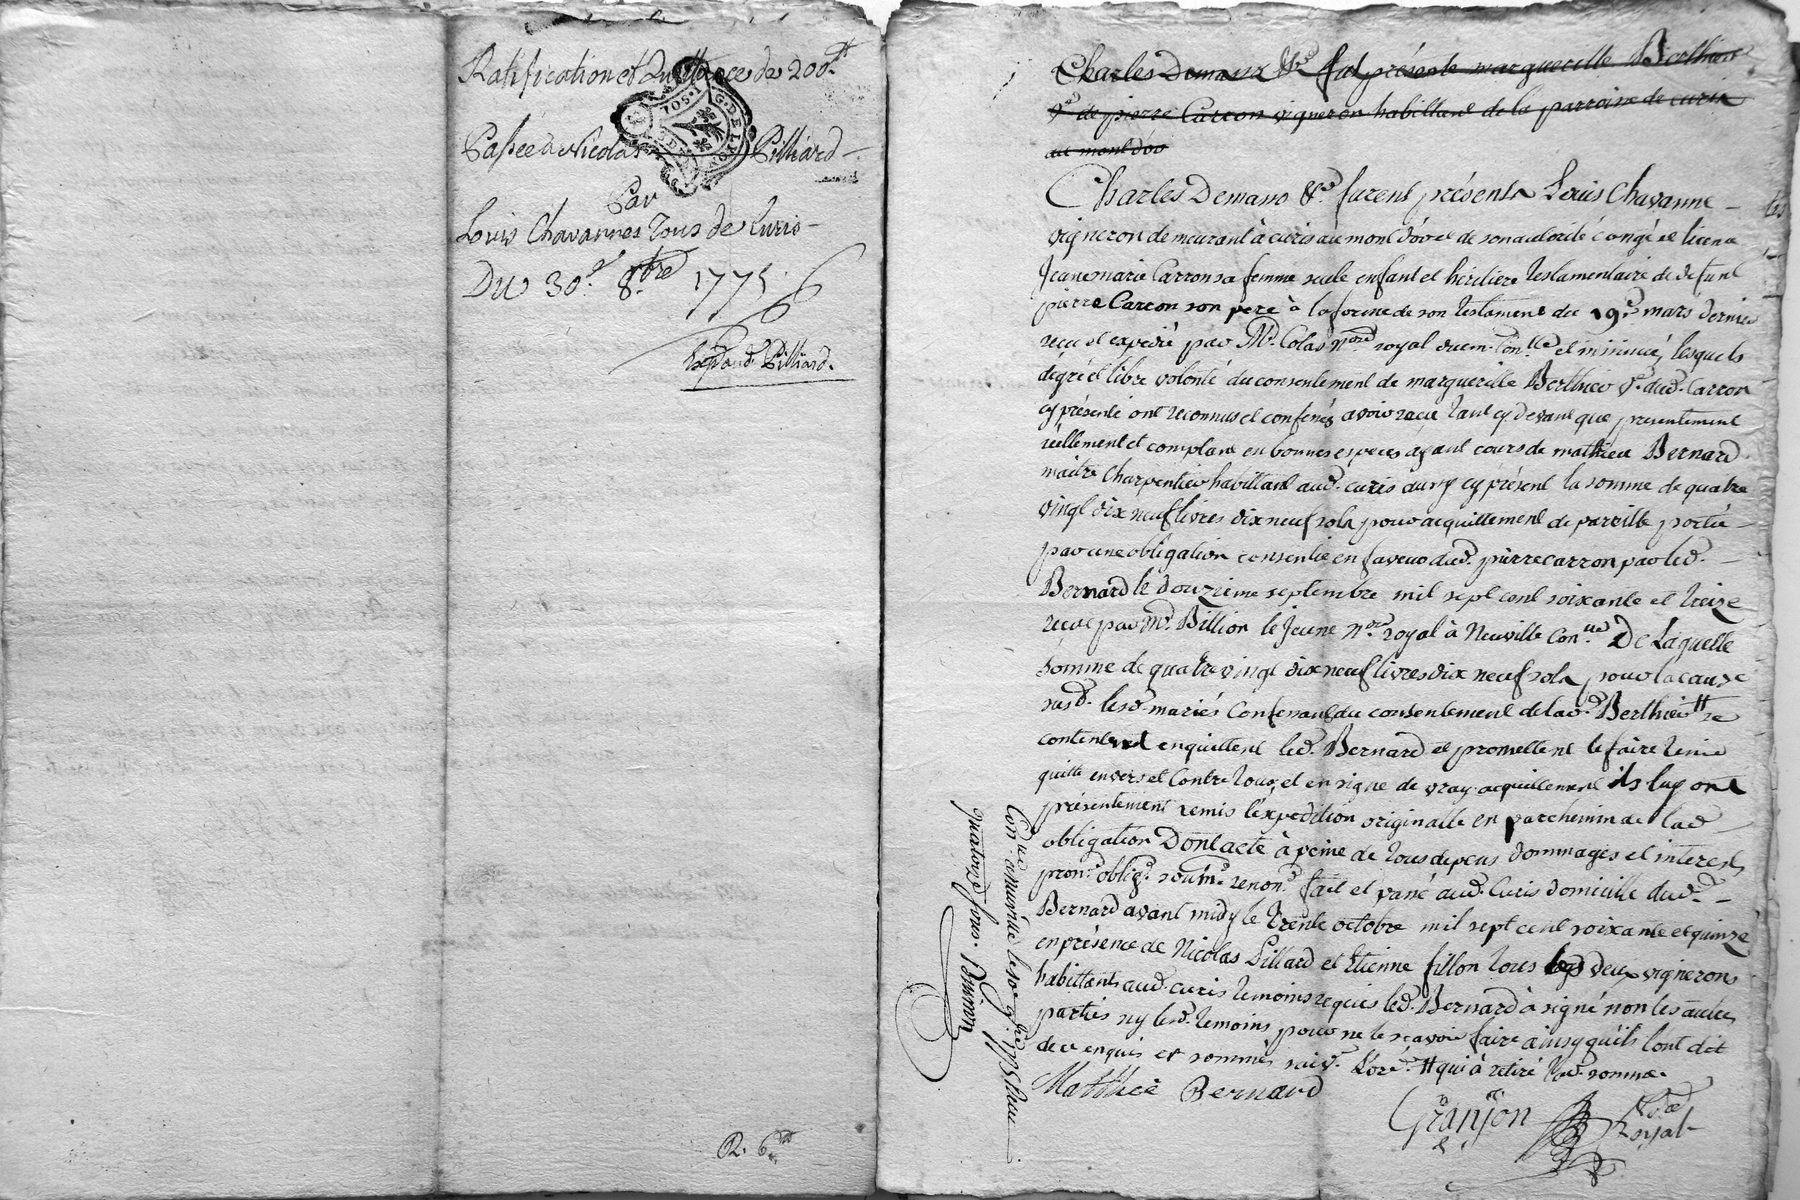 Ratification et Quittance de 200.tt
Passée à Nicolas Pilliard
Par
Louis Chavannes Tous de Curis
Du 30.e 8.bre 1775.
Exp. aud. Pilliard.
R. 6
Charles Demano &.a fut présente marguerite Berthier
v.e de pierre Carron vigneron habittant de la parroisse de curis
au mont d'or
Charles Demano &.a furent présents Louis Chavanne
vigneron demeurant à curis au mont d'or et de son autorité congé et licence
Jeanemarie Carron sa femme seule enfant et héritiere testamentaire de deffunt
pierre Carron son pere à la forme de son testament du 19.e mars dernier
reçu et expédié par M.e Colas n.re royal con.llé et insinué, lesquels
de gré et libre volonté du consentement de marguerite Berthier v.e dud. Carron
cy présente ont reconnus et confessés avoir reçu tant cy devant que presentement
réellement et comptant en bonnes especes ayant cours de mathieu Bernard
maitre Charpentier habittant aud. curis aussy cy présent la somme de quatre
vingt dix neuf livres dix neuf sols pour acquittement de pareille portée
par une obligation consentie en faveur dud. pierre carron par led.
Bernard le douzieme septembre mil sept cent soixante et treize
reçue par M.e Billion le Jeune n.re royal à Neuville Con.llée De Laquelle
somme de quatre vingt dix neuf livres dix neuf sols pour la cause
susd. lesd. mariés Confessant du consentement de lad. Berthier # se
contentent en quittent led. Bernard et promettent le faire tenir
quitte envers et Contre tous, et en signe de vray acquittement ils luy ont
présentement remis l'éxpedition originalle en parchemin de lad.
obligation Dont acte à peine de tous depens dommages et interest
prom.s oblig.s soum.s renon.s fait et passé aud. Curis domicille dud.
Bernard avant midy le trente octobre mil sept cent soixante et quinze
en présence de Nicolas Pillard et Etienne fillon tous deux vignerons
habittants aud. curis temoins requis led. Bernard à signé non les autres
parties ny lesd. temoins pour ne le sçavoir faire ainsy qu'ils l'ont dit
de ce enquis et sommés suiv.t l'ord.e # qui à retiré lad. somme.
Matthieu Bernard
Granjon
N.re
Royal
Con.llé à neuville le 10 9.bre 1775 Reçu
quatorze sous.